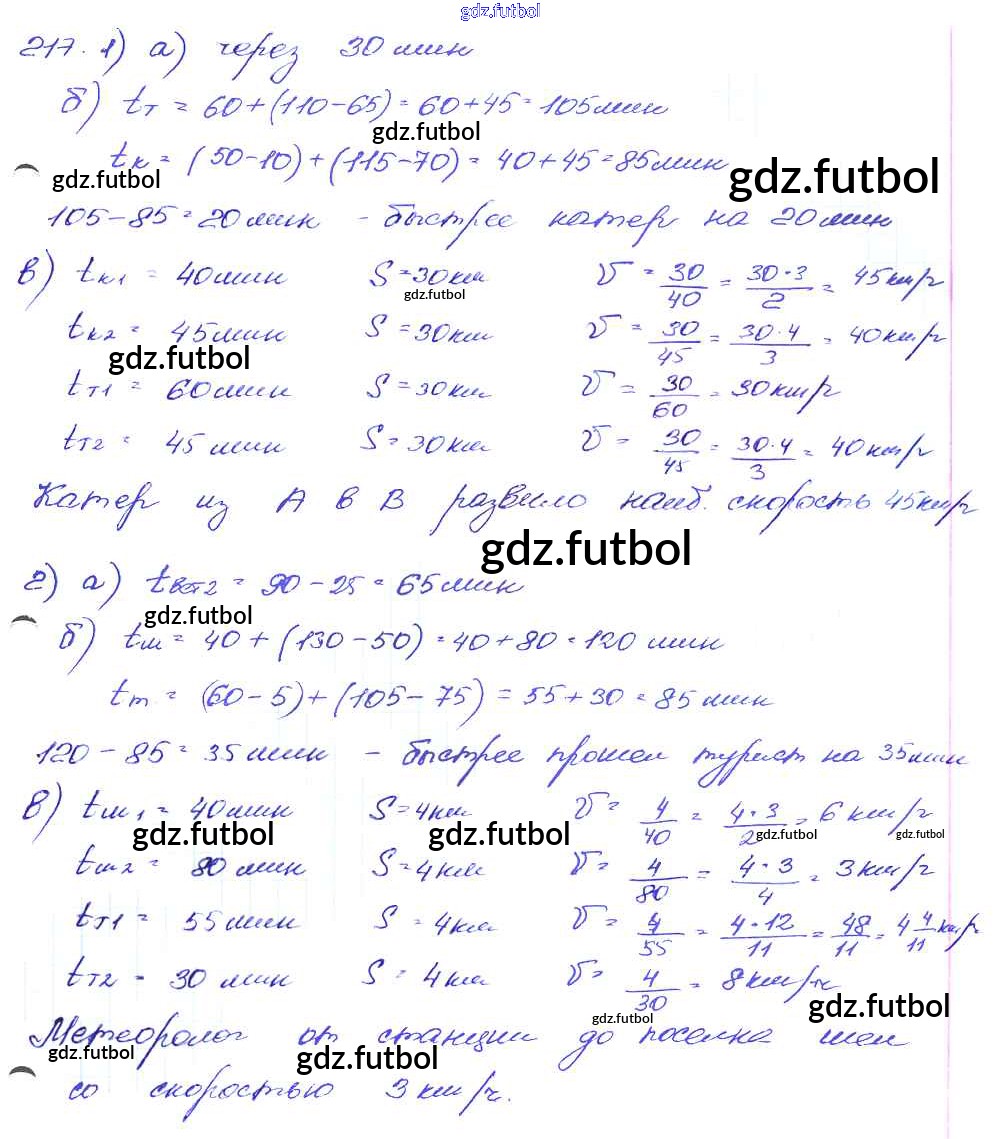 gdz.futbol
217. 1) а) через 30 мин
б) tт = 60+(110-65) = 60+45 = 105 мин
gdz.futbol
tк = (50-10)+(115-70) = 40+45 = 85 мин
gdz.futbol gdz.futbol
105-85 = 20 мин - быстрее катер на 20 мин
в) tк1 = 40 мин S = 30 км V = 30/40 = 30·3/2 = 45 км/ч
gdz.futbol
tк2 = 45 мин S = 30 км V = 30/45 = 30·4/3 = 40 км/ч
gdz.futbol
tт1 = 60 мин S = 30 км V = 30/60 = 30 км/ч
tт2 = 45 мин S = 30 км V = 30/45 = 30·4/3 = 40 км/ч
Катер из А в В развило наиб. скорость 45 км/ч
gdz.futbol
2) а) tвст2 = 90-25 = 65 мин
gdz.futbol
б) tм = 40+(130-50) = 40+80 = 120 мин
tт = (60-5)+(105-75) = 55+30 = 85 мин
120-85 = 35 мин - быстрее прошел турист на 35 мин
в) tм1 = 40 мин S = 4 км V = 4/40 = 4·3/2 = 6 км/ч
gdz.futbol gdz.futbol gdz.futbol gdz.futbol
tм2 = 80 мин S = 4 км V = 4/80 = 4·3/4 = 3 км/ч
tт1 = 55 мин S = 4 км V = 4/55 = 4·12/11 = 48/11 = 4 4/11 км/ч
tт2 = 30 мин S = 4 км V = 4/30 = 8 км/ч
gdz.futbol gdz.futbol
Метеоролог от станции до поселка шел
gdz.futbol gdz.futbol
со скоростью 3 км/ч.